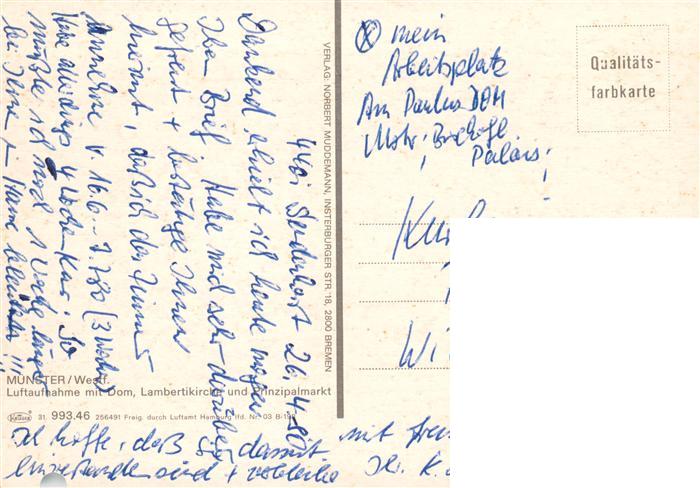 4401 Senderhorst 26.4.80
Dankend erhielt ich heute morgen
Ihren Brief. Habe mich sehr darüber
gefreut + bestätige Ihnen
hiermit, daß ich das Zimmer
v. 16.6. - 7.7.80 (3 Wochen)
Habe allerdings 4 Wochen Kur. So
müßte ich noch 1 Woche länger
bei Ihnen + Hanne bleiben !!!
Ich hoffe, daß Sie damit
einverstanden sind + verbleibe
mit
Ihr. K.
VERLAG: NORBERT MUDDEMANN, INSTERBURGER STR. 18, 2800 BREMEN
MÜNSTER / Westf.
Luftaufnahme mit Dom, Lambertikirche und Prinzipalmarkt
31. 993.46 256491 Freig. durch Luftamt Hamburg lfd. Nr. 03 B-19
mein
Arbeitsplatz
Am Paulus DOM
Palais
Qualitäts-
farbkarte